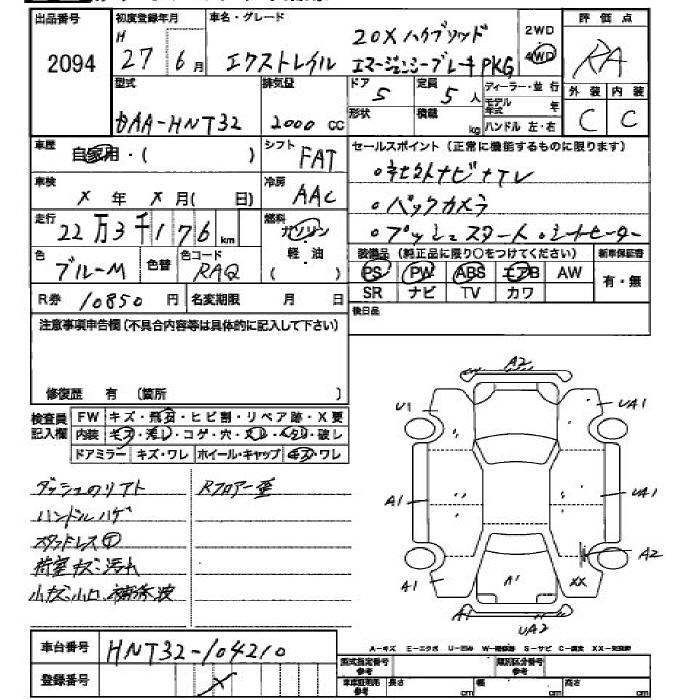 出品番号
2094
初度登録年月
H
27 6月
車名・グレード
エクストレイル
20X ハイブリッド
エマージェンシーブレーキPKG
2WD
4WD
評価点
RA
型式
DAA-HNT32
排気量
2000 cc
ドア
5
定員
5人
形状
積載
kg
ディーラー・並行
モデル年式
年
ハンドル 左・右
外装
内装
C
C
車歴
自家用・( )
シフト
FAT
セールスポイント(正常に機能するものに限ります)
・社外ナビ・TV
・バックカメラ
・プッシュスタート ・シートヒーター
車検
X年 X月( 日)
冷房
AAC
走行
22万3千176km
燃料
ガソリン
軽油
色
ブルーM
色替
色コード
RAQ
装備品(純正品に限り○をつけてください)
新車保証書
PS PW ABS エアB AW
SR ナビ TV カワ
有・無
R券 10850円
名変期限 月 日
後日品
注意事項申告欄(不具合内容等は具体的に記入して下さい)
修復歴 有(箇所 )
検査員記入欄
FW キズ・飛石・ヒビ割・リペア跡・X要
内装 キズ・汚レ・コゲ・穴・スレ・ヘタリ・破レ
ドアミラー キズ・ワレ ホイール・キャップ キズ・ワレ
ダッシュのリフト
ハンドルハゲ
スタッドレス
荷室キズ・汚れ
小キズ、小凹、補修波
Rフロアー歪
A2
U1
UA1
A1
UA1
A2
A1
A1
XX
A1
UA2
A-キズ E-エクボ U-凹み W-補修跡 S-サビ C-腐食 XX-交換済
車台番号
HNT32-104210
登録番号
X
型式指定番号
参考
類別区分番号
参考
車車証寸法
参考
長さ
cm
幅
cm
高さ
cm